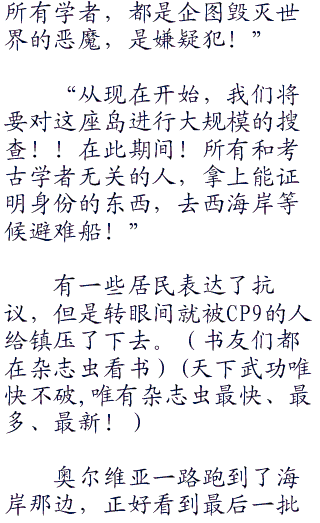 所有学者，都是企图毁灭世
界的恶魔，是嫌疑犯！”
“从现在开始，我们将
要对这座岛进行大规模的搜
查！！在此期间！所有和考
古学者无关的人，拿上能证
明身份的东西，去西海岸等
候避难船！”
有一些居民表达了抗
议，但是转眼间就被CP9的人
给镇压了下去。（书友们都
在杂志虫看书）(天下武功唯
快不破,唯有杂志虫最快、最
多、最新！）
奥尔维亚一路跑到了海
岸那边，正好看到最后一批